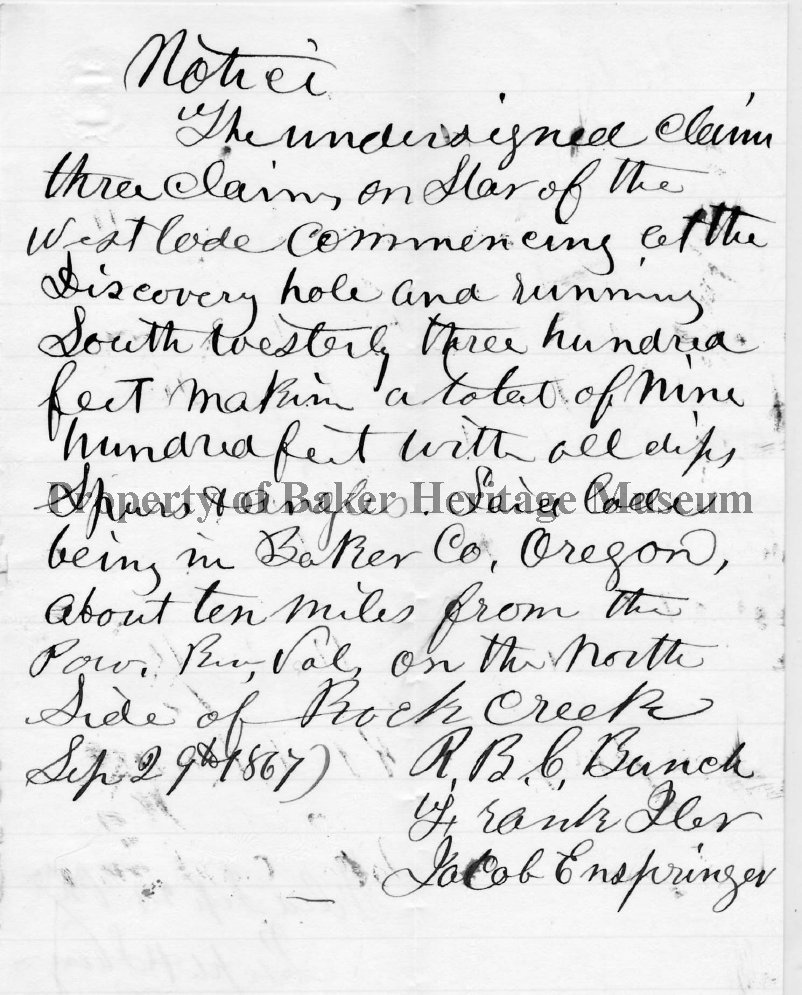 Notice
The undersigned claim
three claims on Star of the
West lode commencing at the
Discovery hole and running
South westerly three hundred
feet making a total of nine
hundred feet with all dips
Spurs & angles. Said lode
Property of Baker Heritage Museum
being in Baker Co, Oregon,
about ten miles from the
Pow. Riv. Val. on the North
Side of Rock Creek
Sep 29th 1867)
R. B. C. Bunch
Frank Iler
Jacob Enspringer